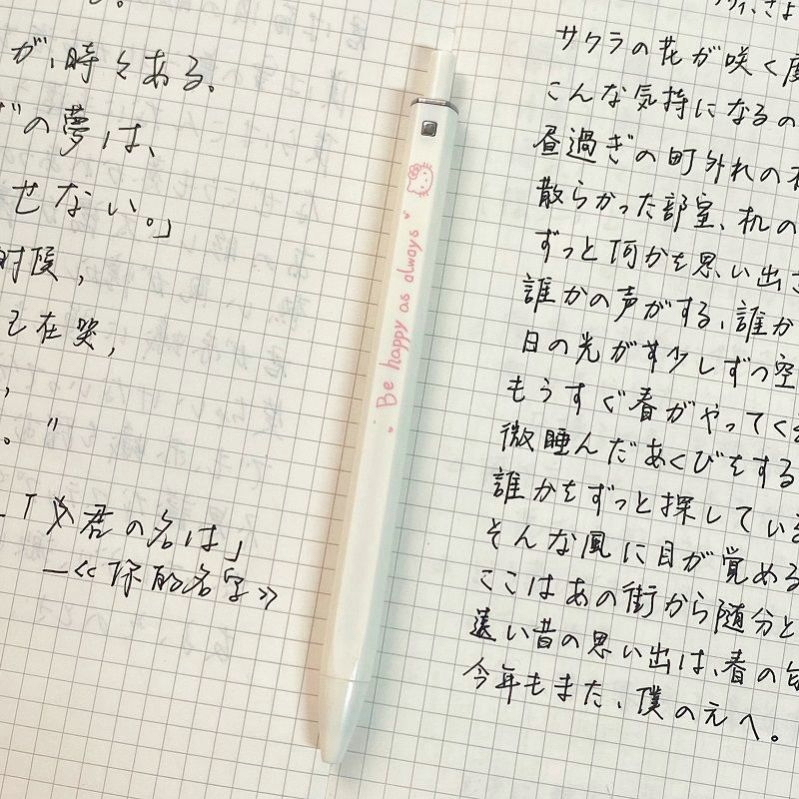 が、時々ある、
の夢は、
せない。」
时候,
在哭,
,
。"
—「君の名は」
—《你的名字》
Be happy as always
サクラの花が咲く度
こんな気持になるの
昼過ぎの町外れの
散らかった部室、机の
ずっと何かを思い出
誰かの声がする、誰か
日の光が少しずつ空
もうすぐ春がやってく
微睡んだあくびをする
誰かをずっと探してい
そんな風に目が覚める
ここはあの街から随分と
遠い昔の思い出は、春の
今年もまた、僕の元へ。